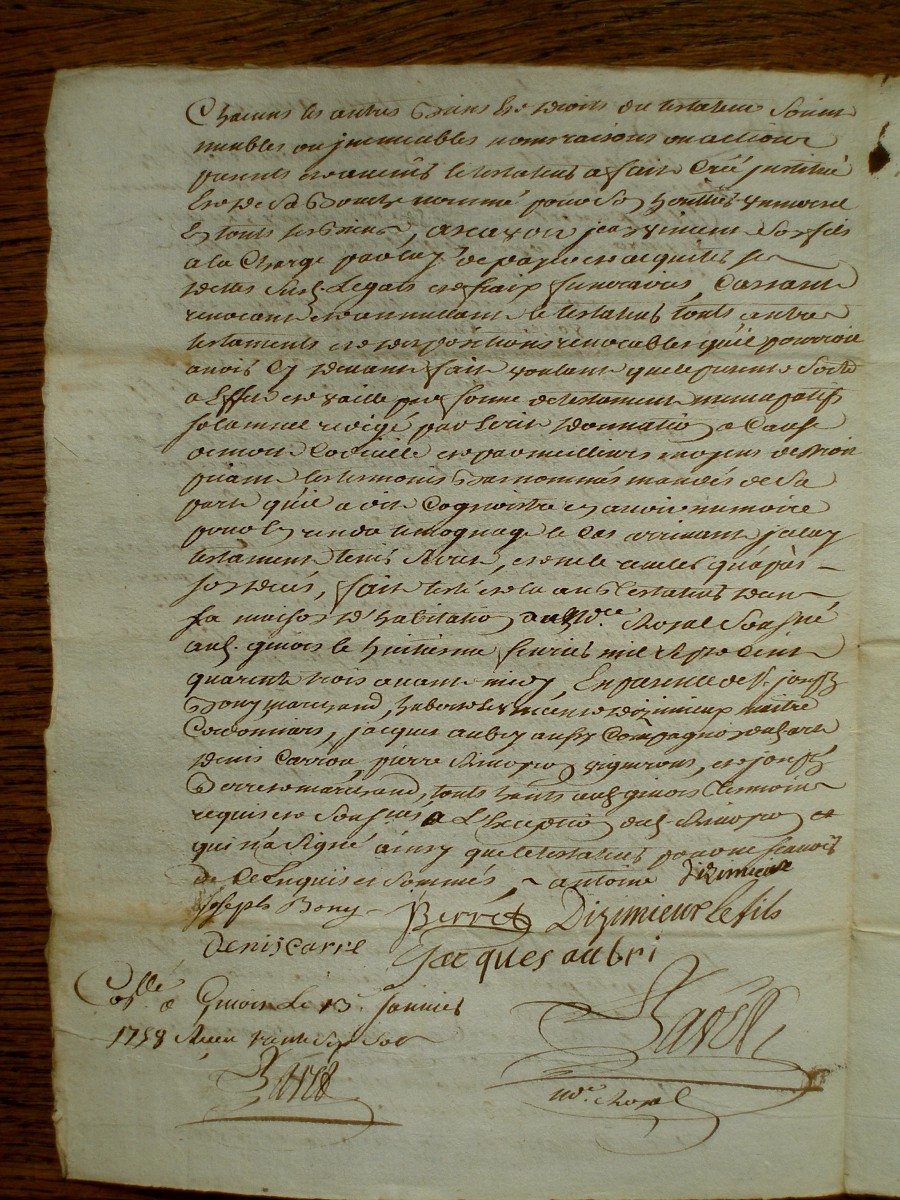 Chacuns les autres Biens et droits du testateur Soient
meubles ou jmmeubles noms raisons ou actions
presents et avenirs le testateur a fait Créé jnstitué
et de Sa Bouche nommé pour Son heritier universel
En touts ses Biens, asavoir jean vincent Son fils
a la Charge par luy de payer et acquiter ses
dettes Susd. Legats et fraix funeraires, Cassant
revocant et annullant le testateur touts autres
testaments et dispositions revocables qu'il pourroit
avoir Cy devant fait voulant que le present Sorte
a Effet et vaille par forme de testament nuncupatif
solemnel redigé par Ecrit donnation a Cause
de mort Codicille et par meilleurs moyens de droit
priant les temoins Bas nommés mandés de Sa
part qu'il a dit Cognoistre en avoir memoire
pour En rendre temognage le Cas arrivant
testament et ne le reveler qu'apès
son deces, fait leu au testateur dans
sa maison d'habitation no.re Royal Sousigné
aud. givors le huitieme fevrier mil Sept Cent
quarente trois avant midy, En presence de Sr. joseph
Bony marchand, dizimieux maitre
Cordonniers, jacques aubry aussy Compagnon dud. art
denis Carron, pierre vignerons, et joseph
Berret marchand, touts habts. aud. givors temoins
requis et Sousignés a L'Exception dud. et
qui n'a Signé ainsy que le testateur pour ne scavoir
de ce Enquis et Sommés, ~ antoine Dizimieux
joseph Bony Berret Dizimieux le fils
denis carre Jacques aubri
Collé. a Givors Le 13 Janvier
1758 Receu
no.re Royal